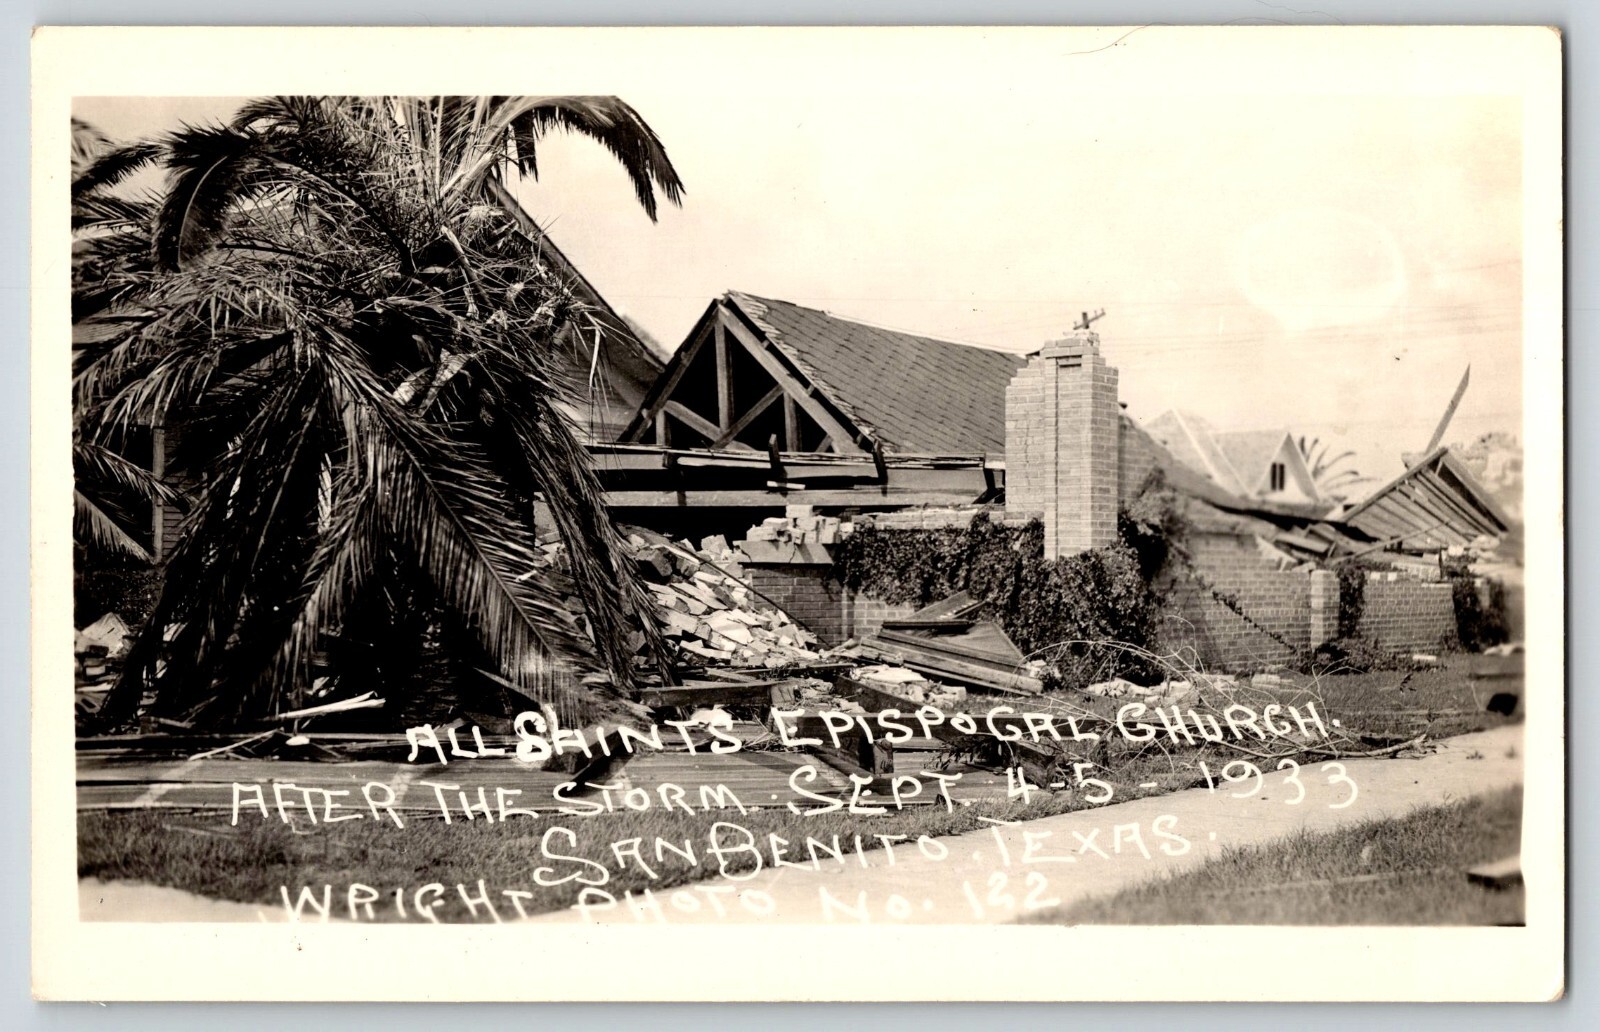 ALL SAINTS EPISPOCAL CHURCH.
AFTER THE STORM. SEPT. 4-5-1933
SAN BENITO, TEXAS.
WRIGHT PHOTO NO. 122